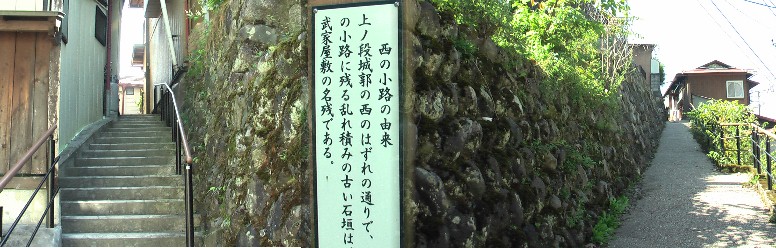 西の小路の由来
上ノ段城郭の西のはずれの通りで、
の小路に残る乱れ積みの古い石垣は、
武家屋敷の名残である。